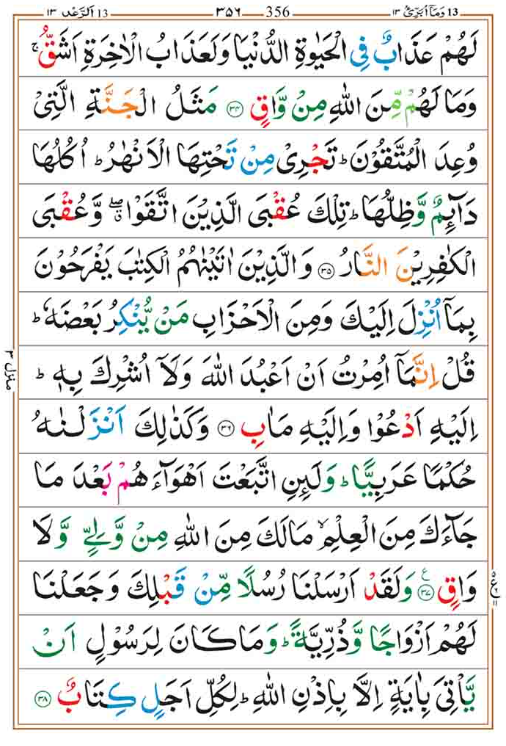 13 وَمَآ اُبَرِّئُ ١٣ 356 ٣٥٦ 13 اَلرَّعْد ١٣
لَهُمْ عَذَابٌ فِی الْحَیٰوةِ الدُّنْیَا وَلَعَذَابُ الْاٰخِرَةِ اَشَقُّ ۚ
وَمَا لَهُمْ مِّنَ اللّٰهِ مِنْ وَّاقٍ ﴿۳۴﴾ مَثَلُ الْجَنَّةِ الَّتِیْ
وُعِدَ الْمُتَّقُوْنَ ؕ تَجْرِیْ مِنْ تَحْتِهَا الْاَنْهٰرُ ؕ اُكُلُهَا
دَآئِمٌ وَّظِلُّهَا ؕ تِلْكَ عُقْبَی الَّذِیْنَ اتَّقَوْا ۖۗ وَّعُقْبَی
الْكٰفِرِیْنَ النَّارُ ﴿۳۵﴾ وَالَّذِیْنَ اٰتَیْنٰهُمُ الْكِتٰبَ یَفْرَحُوْنَ
بِمَاۤ اُنْزِلَ اِلَیْكَ وَمِنَ الْاَحْزَابِ مَنْ یُّنْكِرُ بَعْضَهٗ ؕ
قُلْ اِنَّمَاۤ اُمِرْتُ اَنْ اَعْبُدَ اللّٰهَ وَلَاۤ اُشْرِكَ بِهٖ ؕ
اِلَیْهِ اَدْعُوْا وَاِلَیْهِ مَاٰبِ ﴿۳۶﴾ وَكَذٰلِكَ اَنْزَلْنٰهُ
حُكْمًا عَرَبِیًّا ؕ وَلَىِٕنِ اتَّبَعْتَ اَهْوَآءَهُمْ بَعْدَ مَا
جَآءَكَ مِنَ الْعِلْمِ ۙ مَا لَكَ مِنَ اللّٰهِ مِنْ وَّلِیٍّ وَّلَا
وَاقٍ ﴿۳۷﴾ ع وَلَقَدْ اَرْسَلْنَا رُسُلًا مِّنْ قَبْلِكَ وَجَعَلْنَا
لَهُمْ اَزْوَاجًا وَّذُرِّیَّةً ؕ وَمَا كَانَ لِرَسُوْلٍ اَنْ
یَّاْتِیَ بِاٰیَةٍ اِلَّا بِاِذْنِ اللّٰهِ ؕ لِكُلِّ اَجَلٍ كِتَابٌ ﴿۳۸﴾
منزل ٣